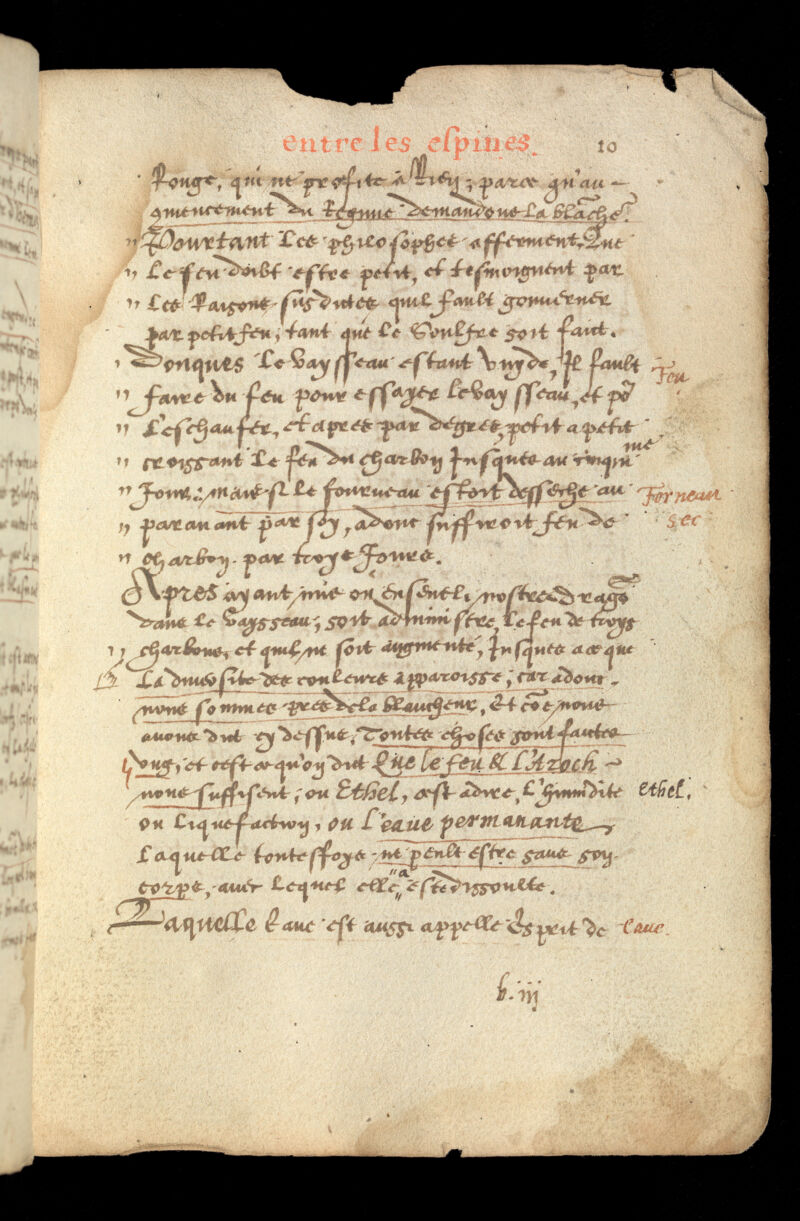 entre les espines. 10
Rouge, qui ne profite a Rien; parce qu'au
gmencement du Regime demandons la blāche.
" Pourtant les philosophes afferment, Que
" Le feu doibt estre petit, et tesmoignent par
" Les Raisons susdictes quil fault gouverner
par petit feu, tant que le Soulfre soit faict.
' Donques le vaysseau estant vuyde, Il fault Feu
" faire du feu pour essayer le vaysseau, et pō
" L'eschaufer, et apres par degres, petit a petit
" croissant le feu du charbon Jusques au cinqui me
" Jour: mais si le fourneau estoit desseche au Forneau
" paravant par soy, adonc suffiroit feu de sec
" charbon par troys Jours.
Apres ayant mis ou enseveli nostre dragō
dans le vaysseau, soit administre le feu de troys
" charbons, et quil ne soit augmenté, Jusques a ce que
La diversite des couleurs apparoisse; car adonc
nous sommes pres de la blancheur, Et cōe nous
avons dict cy dessus, Toutes choses sont faites
ung, et cest ce qu'on dict Que le feu & l'Azoch
nous suffisent, ou Ethel, cest adire, L'humidite Ethel.
ou Liquefaction, ou l'eaue permanante
Laquelle toutesfoys ne peult estre sans son
corps, avec lequel elle a este dissoulte.
Laquelle Eaue est aussi appelle Esprit de Eaue.
b.iii